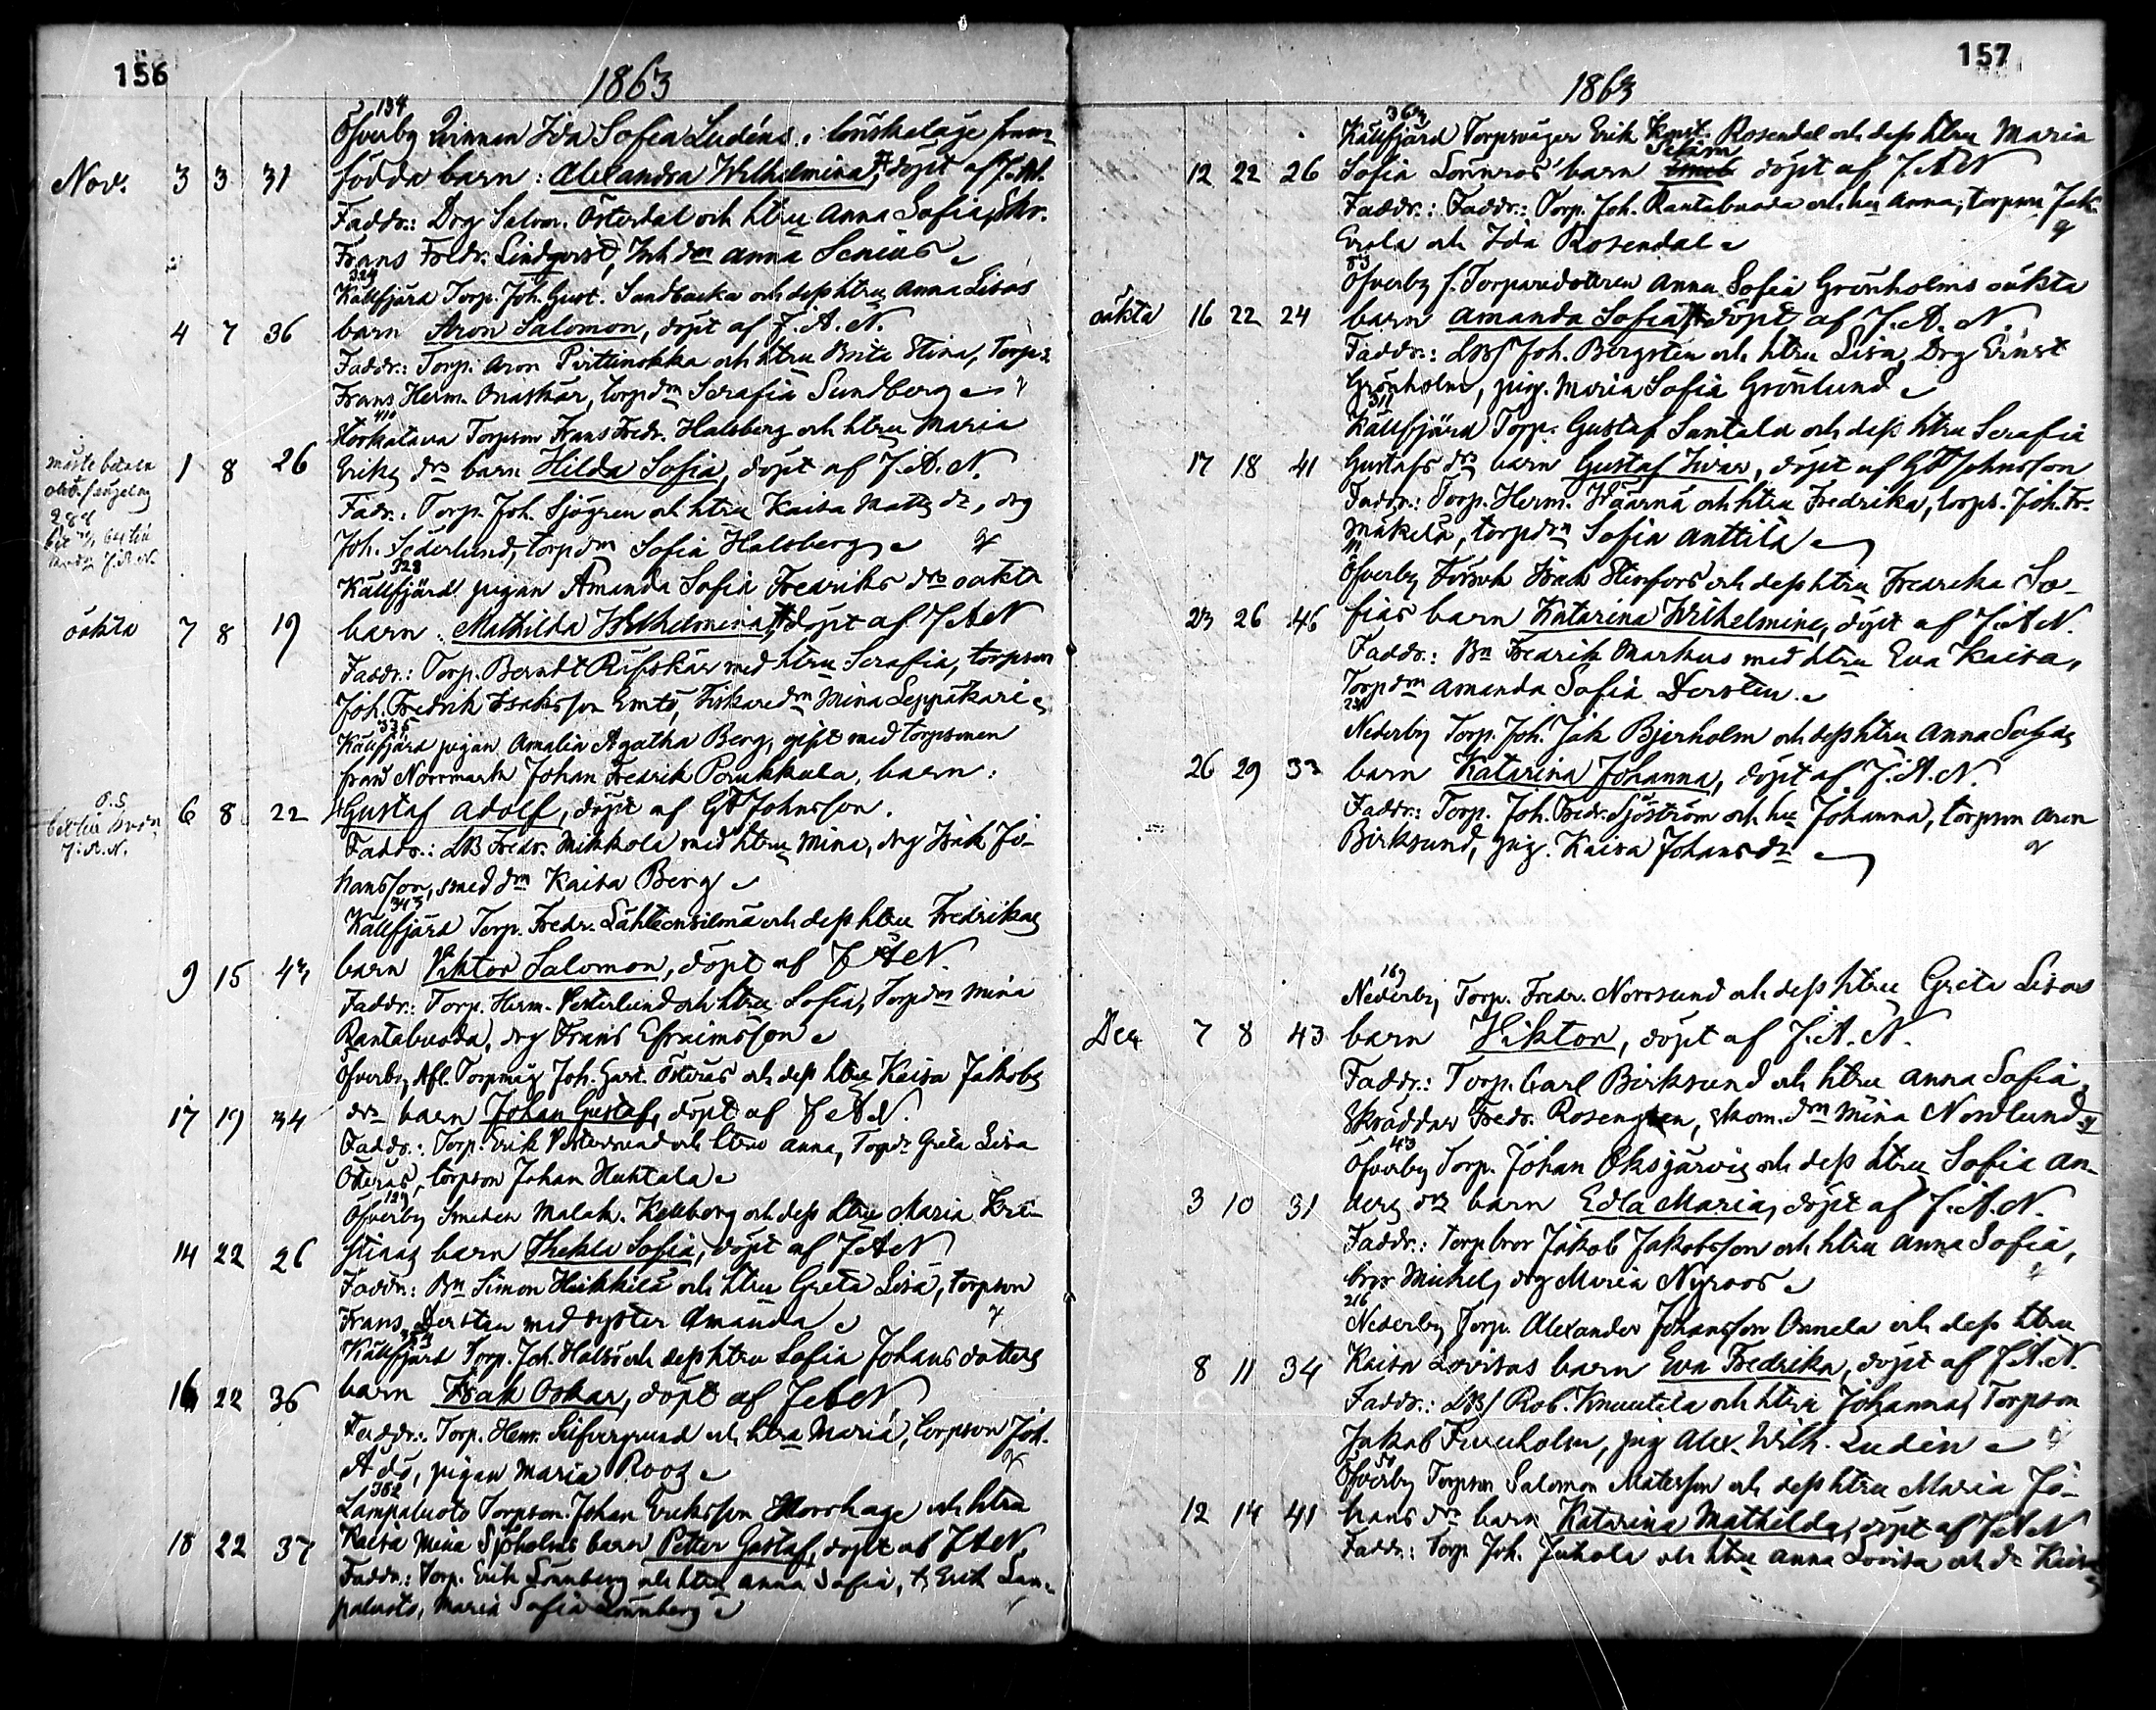 156
1863
134
Öfverby Qvinnan Ida Sofia Ludéns i lönskaläge fram-
Nov. 3 3 31 födda barn: Alexandra Wilhelmina, döpt af J.A.N.
Faddr.: Drg Salom. Österdal och htru Anna Sofia, Skr.
Frans Fredr. Lindqvist, Inh dn Anna Senius
324
Källfjärd Torp. Joh. Gust. Sandbacka och dess htru Anna Lisas
4 7 36 barn Aron Salomon, döpt af J.A.N.
Faddr.: Torp. Aron Pirttinokka och htru Brita Stina, Torps.
Frans Herm. Onaskär, torpdn Serafia Sundberg
410
Torpson Frans Fredr. Halsberg och htru Maria
måste betala
1 8 26 Eriks drs barn Hilda Sofia, döpt af J.A.N.
Fadr.: Torp. Joh. Sjögren och htru Kaisa Matts dr, drg
J.A.N.
Joh. Söderlund, torpdn Sofia Halsberg
328
Källfjärd pigan Amanda Sofia Fredriks drs oäkta
oäkta 7 8 19 barn Mathilda Wilhelmina, döpt af J.A.N
Faddr.: Torp. Berndt Rifskär med htru Serafia, torpson
Joh. Fredrik Isaksson Emtö, Fiskaredn Mina Leppäkari
335
Källfjärd pigan Amalia Agatha Berg, gift med torpsonen
från Norrmark Johan Fredrik Porukkala, barn:
6 8 22 Gustaf Adolf, döpt af G Johnsson.
J.A.N.
Faddr.: LB Fredr. Mikkola med htru Mina, drg Isak Jo-
hansson, smed dn Kaisa Berg
343
Källfjärd Torp. Fredr. Lähteensilmä och dess htru Fredrikas
9 15 43 barn Viktor Salomon, döpt af J.A.N.
Faddr.: Torp. Herm. Vesterlund och htru Sofia, Torpdn Mina
Rantabuoda, drg Frans Efraimsson
Öfverby Afl. Torpmåg Joh. Gust. Österås och dess htru Kaisa Jakobs
17 19 34 drs barn Johan Gustaf, döpt af J.A.N.
Faddr.: Torp. Erik Vestersund och htru Anna, Torpdr Greta Lisa
Österås, torpson Johan Huhtala
129
Öfverby Smeden Malak. Kellberg och dess htru Maria Kri-
14 22 26 stinas barn Thekla Sofia, döpt af J.A.N
Faddr.: Bn Simon Heikkilä och htru Greta Lisa, torpson
Frans Dersten med syster Amanda
354
Källfjärd Torp. Joh. Halsö och dess htru Sofia Johans dotters
16 22 36 barn Isak Oskar, döpt af J.A.N.
Faddr.: Torp. Henr. Silfvergrund och htru Maria, torpson Joh.
Adö, pigan Maria Roos
362
Lampaluoto Torpson Johan Eriksson Storrhage och htru
18 22 37 Kaisa Mina Sjöholms barn Petter Gustaf, döpt af J.A.N.
Faddr.: Torp. Erik Lönnberg och htru Anna Sofia, ts Erik Lam-
paluoto, Maria Sofia Lönnberg
157
1863
363
Källfjärd Torpsvåger Erik Konst. Rosendal och dess htru Maria
Selim
12 22 26 Sofia Lönnros' barn döpt af J.A.N
Faddr.: Faddr.: Torp. Joh. Rantabuoda och hu Anna, torpson Jak.
Erola och Ida Rosendal
83
Öfverby f. Torparedottren Anna Sofia Grönholms oäkta
oäkta 16 22 24 barn Amanda Sofia, döpt af J.A.N.
Faddr.: LBs Joh. Bergsten och htru Lisa, Drg Ernst
Grönholm, pig. Maria Sofia Grönlund
311
Källfjärd Torp. Gustaf Santala och dess htru Serafia
17 18 41 Gustafs drs barn Gustaf Ivar, döpt af G Johnsson
Faddr.: Torp. Herm. Wäärnä och htru Fredrika, torps. Joh. Fr.
Mäkelä, torpdn Sofia Anttila
Öfverby Isak Stenfors och dess htru Fredrika So-
23 26 46 fias barn Katarina Wilhelmina, döpt af J.A.N.
Faddr.: Bn Fredrik Markus med htru Eva Kaisa,
Torpdn Amanda Sofia Dersten.
231
Nederby Torp. Joh. Jak Bjerholm och dess htru Anna Sofias
26 29 33 barn Katarina Johanna, döpt af J.A.N.
Faddr.: Torp. Joh. Fredr. Sjöström och hu Johanna, torpson Aron
Birksund, pig. Kaisa Johansdr
169
Nederby Torp. Fredr. Norrsund och dess htru Greta Lisas
Dec. 7 8 43 barn Viktor, döpt af J.A.N.
Faddr.: Torp. Carl Birksund och htru Anna Sofia,
Skräddar Fredr. Rosengren, skom. dn Mina Nordlund
43
Öfverby Torp. Johan Oksjärvis och dess htru Sofia An-
3 10 31 ders drs barn Edla Maria, döpt af J.A.N.
Faddr.: torpbror Jakob Jakobsson och htru Anna Sofia,
bror Mickel, drg Maria Nyroos
216
Nederby Torp. Alexander Johansson Onnela och dess htru
8 11 34 Kaisa Lovisas barn Eva Fredrika, döpt af J.A.N.
Faddr.: LBs Rob. Knuutila och htru Johanna, Torpson
Jakob Furuholm, pig Alex. Wilh. Ludén
50
Öfverby Torpson Salomon Matsson och dess htru Maria Jo-
12 14 41 hans drs barn Katarina Mathilda, döpt af J.A.N
Faddr.: Torp. Joh. Juhola och htru Anna Lovisa och dr Kaisa